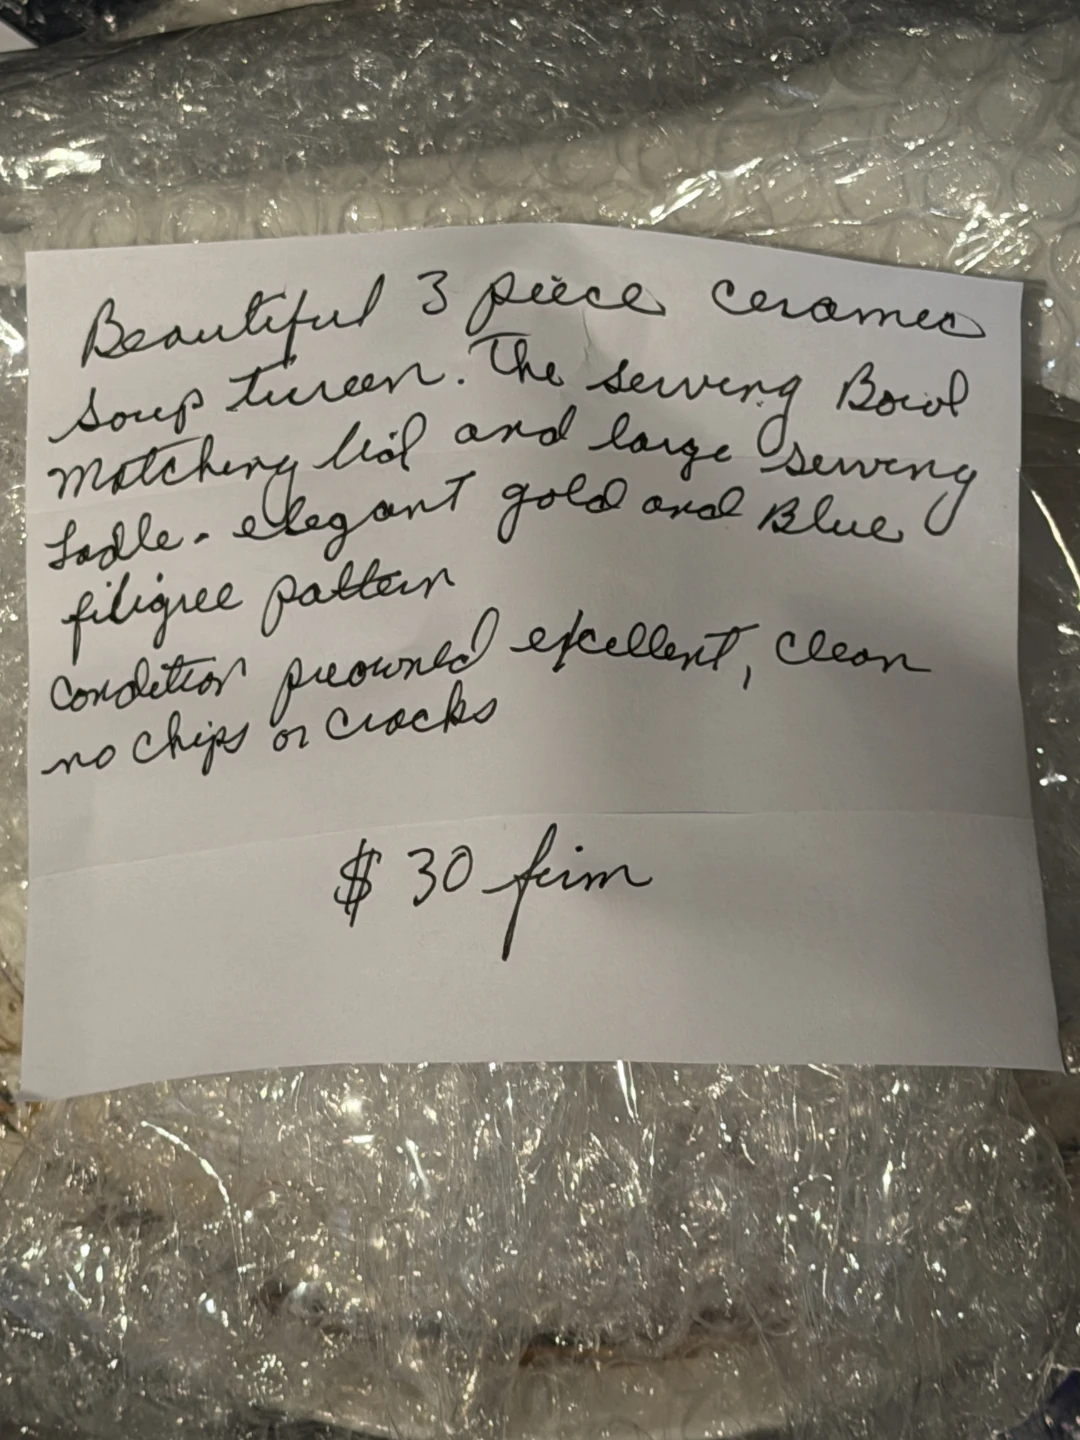 Beautiful 3 piece ceramic
soup tureen. The serving Bowl
matching lid and large serving
Ladle. elegant gold and Blue
filigree pattern
condition preowned excellent, clean
no chips or cracks
$ 30 firm